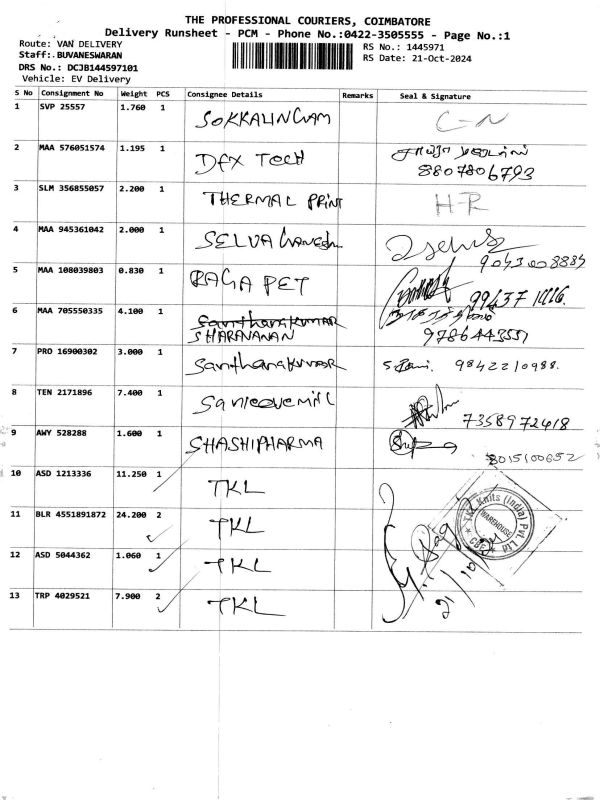 THE PROFESSIONAL COURIERS, COIMBATORE
Delivery Runsheet - PCM - Phone No.:0422-3505555 - Page No.:1
Route: VAN DELIVERY
RS No.: 1445971
Staff: BUVANESWARAN
RS Date: 21-Oct-2024
DRS No.: DCJB144597101
Vehicle: EV Delivery
S No Consignment No Weight PCS Consignee Details Remarks Seal & Signature
1 SVP 25557 1.760 1 SOKKALINGAM C-N
2 MAA 576051574 1.195 1 DFX TECH 8807806793
3 SLM 356855057 2.200 1 THERMAL PRINT H-R
4 MAA 945361042 2.000 1 SELVAGANESH 9043008884
5 MAA 108039803 0.830 1 RAGA PET
6 MAA 705550335 4.100 1 Santhanakumar
SHARAVANAN
7 PRO 16900302 3.000 1 Santhanakumar 9842210988.
8 TEN 2171896 7.400 1 7358972418
9 AWY 528288 1.600 1 SHASHIPHARMA 8015100652
10 ASD 1213336 11.250 1 TKL
11 BLR 4551891872 24.200 2 TKL
12 ASD 5044362 1.060 1 TKL
13 TRP 4029521 7.900 2 TKL
TKL Knits (India) Pvt. Ltd
WAREHOUSE
CBE
21/10/24